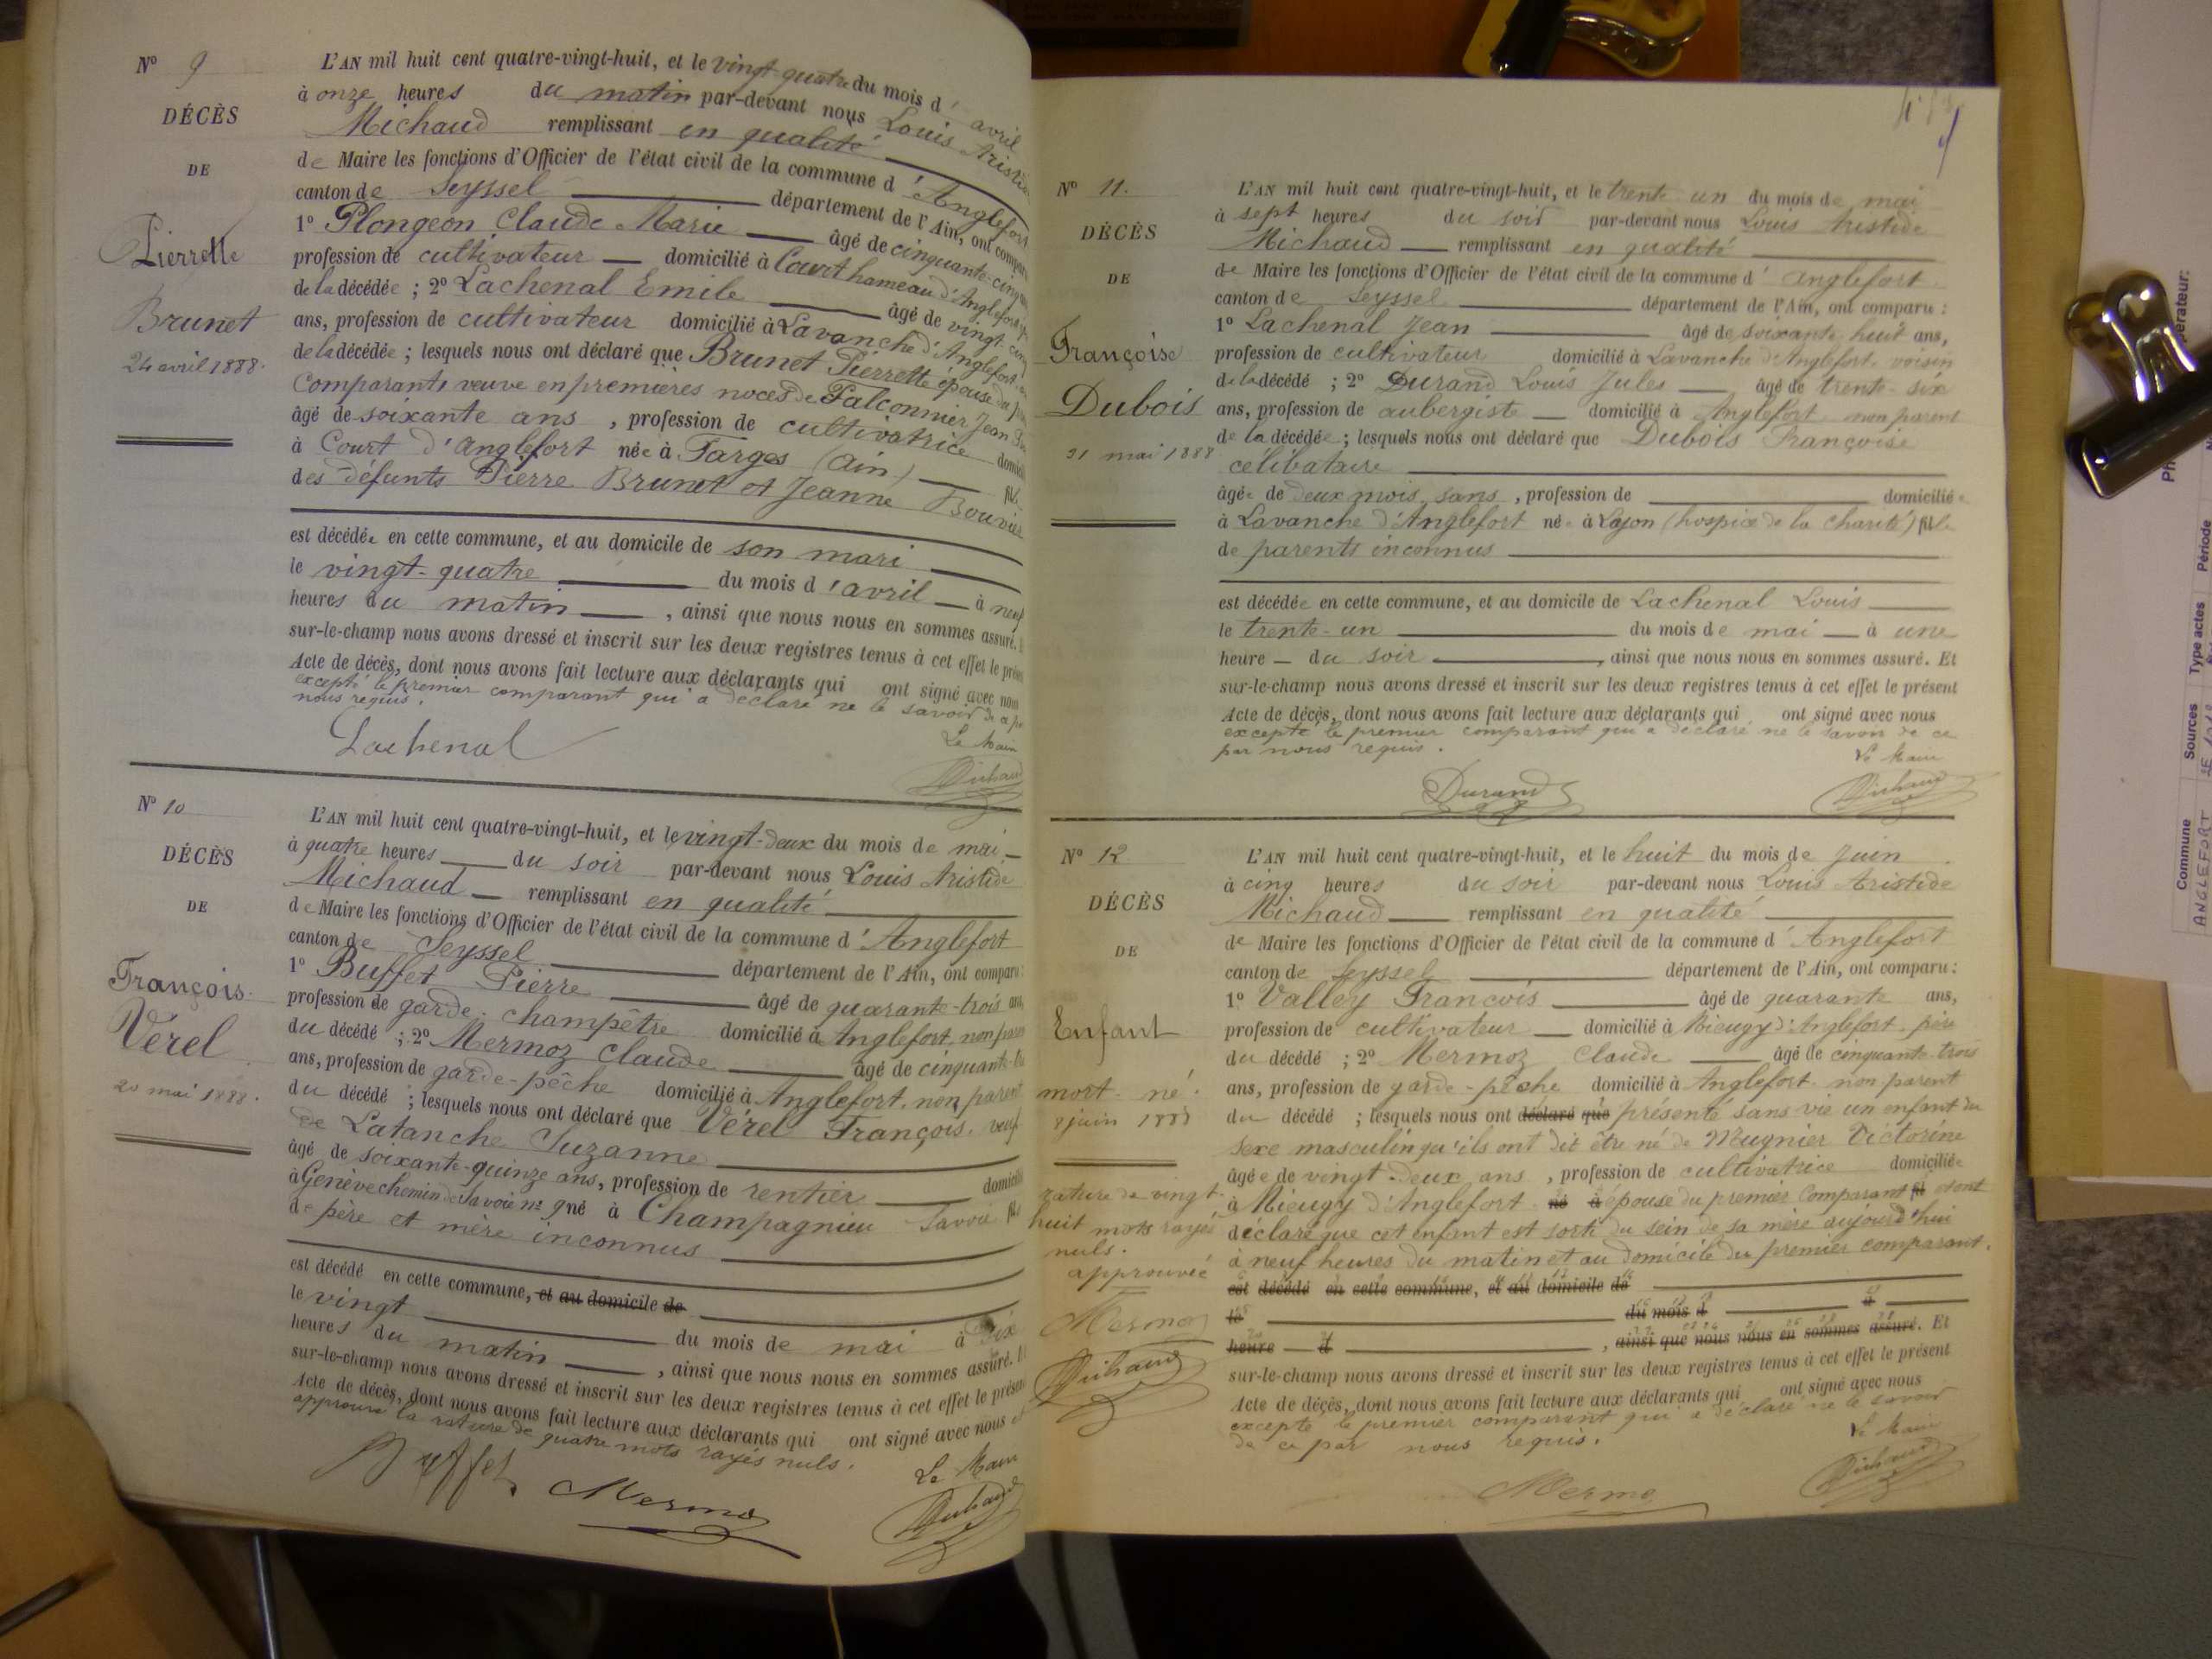 N° 9
DÉCÈS
DE
Pierrette
Brunet
24 avril 1888.
L'AN mil huit cent quatre-vingt-huit, et le vingt-quatre du mois d' avril
à onze heures du matin par-devant nous Louis Aristide
Michaud remplissant en qualité
de Maire les fonctions d'Officier de l'état civil de la commune d'Anglefort
canton de Seyssel département de l'Ain, ont comparu
1° Plongeon Claude Marie âgé de cinquante-cinq
profession de cultivateur domicilié à Court hameau d'Anglefort
de la décédée ; 2° Lachenal Emile âgé de vingt-cinq
ans, profession de cultivateur domicilié à Lavanche d'Anglefort
de la décédée ; lesquels nous ont déclaré que Brunet Pierrette épouse du
Comparant, veuve en premières noces de Falconnier Jean
âgé de soixante ans , profession de cultivatrice
à Court d'Anglefort née à Farges (Ain) fil
des défunts Pierre Brunet et Jeanne Bouvier
est décédée en cette commune, et au domicile de son mari
le vingt-quatre du mois d'avril à neuf
heures du matin , ainsi que nous nous en sommes assuré.
sur-le-champ nous avons dressé et inscrit sur les deux registres tenus à cet effet le
Acte de décès, dont nous avons fait lecture aux déclarants qui ont signé avec nous
excepté le premier comparant qui a déclaré ne le savoir de ce
nous requis.
Lachenal
Le Maire
Michaud
N° 10
DÉCÈS
DE
François
Vérel
20 mai 1888.
L'AN mil huit cent quatre-vingt-huit, et le vingt-deux du mois de mai
à quatre heures du soir par-devant nous Louis Aristide
Michaud remplissant en qualité
de Maire les fonctions d'Officier de l'état civil de la commune d'Anglefort
canton de Seyssel département de l'Ain, ont comparu :
1° Buffet Pierre âgé de quarante-trois ans
profession de garde-champêtre domicilié à Anglefort, non
du décédé ; 2° Mermoz Claude âgé de cinquante
ans, profession de garde-pêche domicilié à Anglefort, non parent
du décédé ; lesquels nous ont déclaré que Vérel François, veuf
de Latanche Suzanne
âgé de soixante-quinze ans, profession de rentier
à Genève chemin de Savoie n° 9 né à Champagnieu Savoie
de père et mère inconnus
est décédé en cette commune, et au domicile de
le vingt du mois de mai à dix
heures du matin , ainsi que nous nous en sommes assuré.
sur-le-champ nous avons dressé et inscrit sur les deux registres tenus à cet effet le présent
Acte de décès, dont nous avons fait lecture aux déclarants qui ont signé avec nous
approuvé la rature de quatre mots rayés nuls.
Buffet Mermoz
Le Maire
Michaud
N° 11.
DÉCÈS
DE
Françoise
Dubois
31 mai 1888
L'AN mil huit cent quatre-vingt-huit, et le trente un du mois de mai
à sept heures du soir par-devant nous Louis Aristide
Michaud remplissant en qualité
de Maire les fonctions d'Officier de l'état civil de la commune d'Anglefort
canton de Seyssel département de l'Ain, ont comparu :
1° Lachenal Jean âgé de soixante huit ans,
profession de cultivateur domicilié à Lavanche d'Anglefort, voisin
de la décédé ; 2° Durand Louis Jules âgé de trente-six
ans, profession de aubergiste domicilié à Anglefort non parent
de la décédée ; lesquels nous ont déclaré que Dubois Françoise
célibataire
âgée de deux mois, sans , profession de domiciliée
à Lavanche d'Anglefort née à Lyon (hospice de la charité) fille
de parents inconnus
est décédée en cette commune, et au domicile de Lachenal Louis
le trente-un du mois de mai à une
heure du soir , ainsi que nous nous en sommes assuré. Et
sur-le-champ nous avons dressé et inscrit sur les deux registres tenus à cet effet le présent
Acte de décès, dont nous avons fait lecture aux déclarants qui ont signé avec nous
excepté le premier comparant qui a déclaré ne le savoir de ce
par nous requis.
Le Maire
Durand
Michaud
N° 12
DÉCÈS
DE
Enfant
mort-né.
8 juin 1888
rature de vingt-
huit mots rayés
nuls.
approuvée
Mermoz
Michaud
L'AN mil huit cent quatre-vingt-huit, et le huit du mois de Juin
à cinq heures du soir par-devant nous Louis Aristide
Michaud remplissant en qualité
de Maire les fonctions d'Officier de l'état civil de la commune d'Anglefort
canton de Seyssel département de l'Ain, ont comparu :
1° Valley François âgé de quarante ans,
profession de cultivateur domicilié à Rieugy d'Anglefort, père
du décédé ; 2° Mermoz Claude âgé de cinquante-trois
ans, profession de garde-pêche domicilié à Anglefort. non parent
du décédé ; lesquels nous ont déclaré que présenté sans vie un enfant du
sexe masculin qu'ils ont dit être né de Mugnier Victorine
âgée de vingt-deux ans , profession de cultivatrice domiciliée
à Rieugy d'Anglefort né à épouse du premier Comparant fil et ont
déclaré que cet enfant est sorti du sein de sa mère aujourd'hui
à neuf heures du matin et au domicile du premier comparant.
est décédé en cette commune, et au domicile de
le du mois d à
heure d , ainsi que nous nous en sommes assuré. Et
sur-le-champ nous avons dressé et inscrit sur les deux registres tenus à cet effet le présent
Acte de décès, dont nous avons fait lecture aux déclarants qui ont signé avec nous
excepté le premier comparant qui a déclaré ne le savoir
de ce par nous requis.
Le Maire
Mermoz
Michaud
Commune
Sources
Type actes
Période
ANGLEFORT